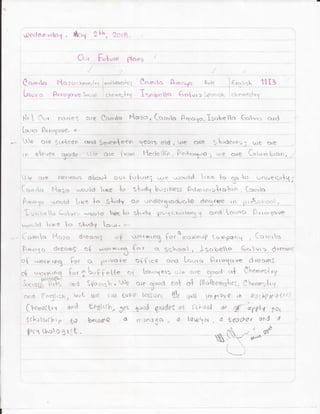 Wednesday, May 2th, 2018.
Our Future plans
Camila Maza chemistry mathematics Camila Amaya Arts English 11E3
Laura Arroyave Social chemistry Isabella Galvis Spanish chemistry
Hi! Our names are Camila Maza, Camila Amaya, Isabella Galvis and
Laura Arroyave.
We are sixteen and seventeen years old, we are students; we are
in eleven grade. We are from Medellin, Antioquia, we are Colombian,
We are nervous about our future; we would like to go to university;
Camila Maza would like to study business Administration, Camila
Amaya would like to study an undergraduate degree in preschool,
Isabella Galvis would like to study psychology and Laura Arroyave
would like to study law.
Camila Maza dreams of working for makeup company, Camila
Amaya dreams of working for a school, Isabella Galvis dreams
of working for a private office and Laura Arroyave dreams
of working for a buffette of lawyers. We are good at Chemistry
Social, Arts and Spanish. We are good not at Mathematics, Chemistry
and English, but we can take lesson. We will improve in
Chemistry and English, get good grades at school or apply for
scholarship to become a manager, a lawyer, a teacher and a
psychologist.